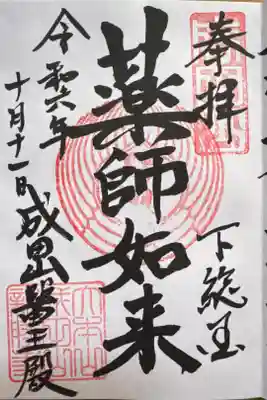 奉拝
下総国
薬師如来
令和六年
十月十一日
成田山醫王殿